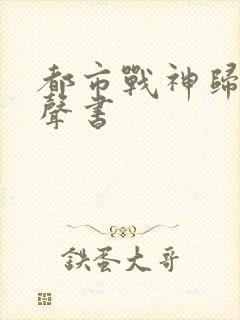 都市戰神歸
聲書
鉄蛋大哥